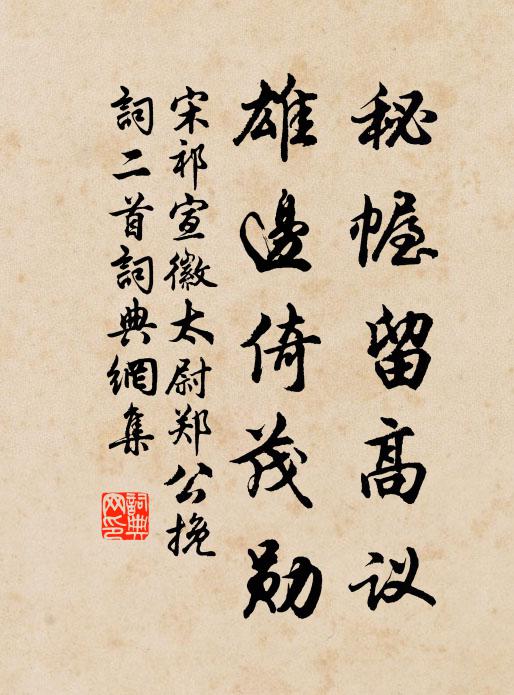 秘幄留高议
雄邊倚茂勋
宋祁宣徽太尉郑公挽
詞二首詞典網集
詞典网印